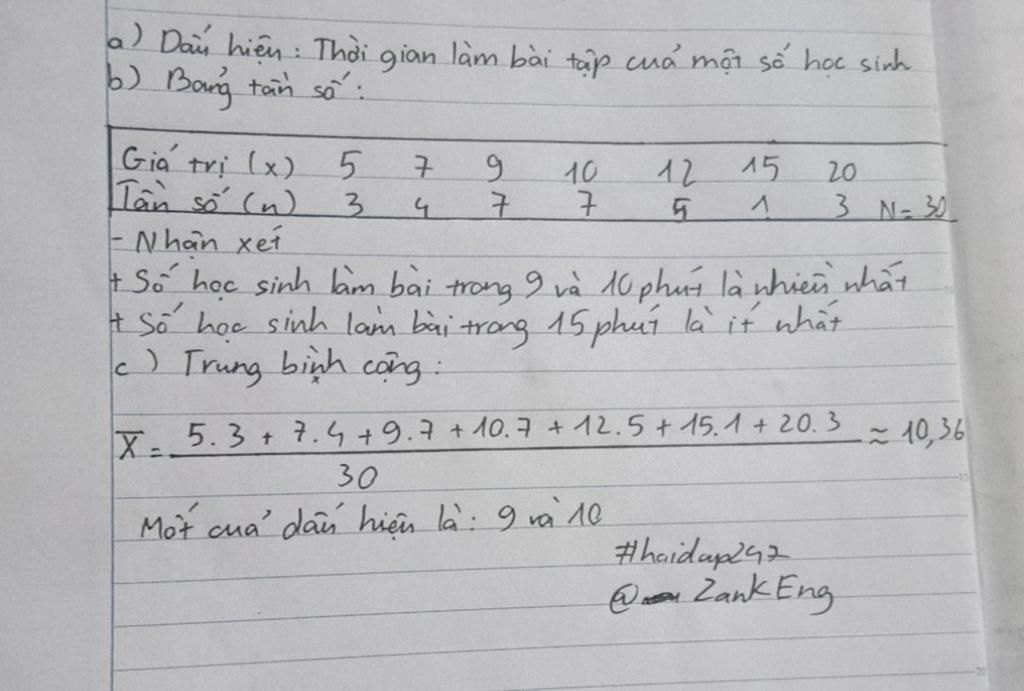 a) Dấu hiệu: Thời gian làm bài tập của một số học sinh
b) Bảng tần số:
Giá trị (x) 5 7 9 10 12 15 20
Tần số (n) 3 4 7 7 5 1 3 N=30
- Nhận xét
+ Số học sinh làm bài trong 9 và 10 phút là nhiều nhất
+ Số học sinh làm bài trong 15 phút là ít nhất
c) Trung bình cộng:
X̄ = 5.3 + 7.4 + 9.7 + 10.7 + 12.5 + 15.1 + 20.3 ≈ 10,36
30
Mốt của dấu hiệu là: 9 và 10
#hoidap247
@ ZankEng